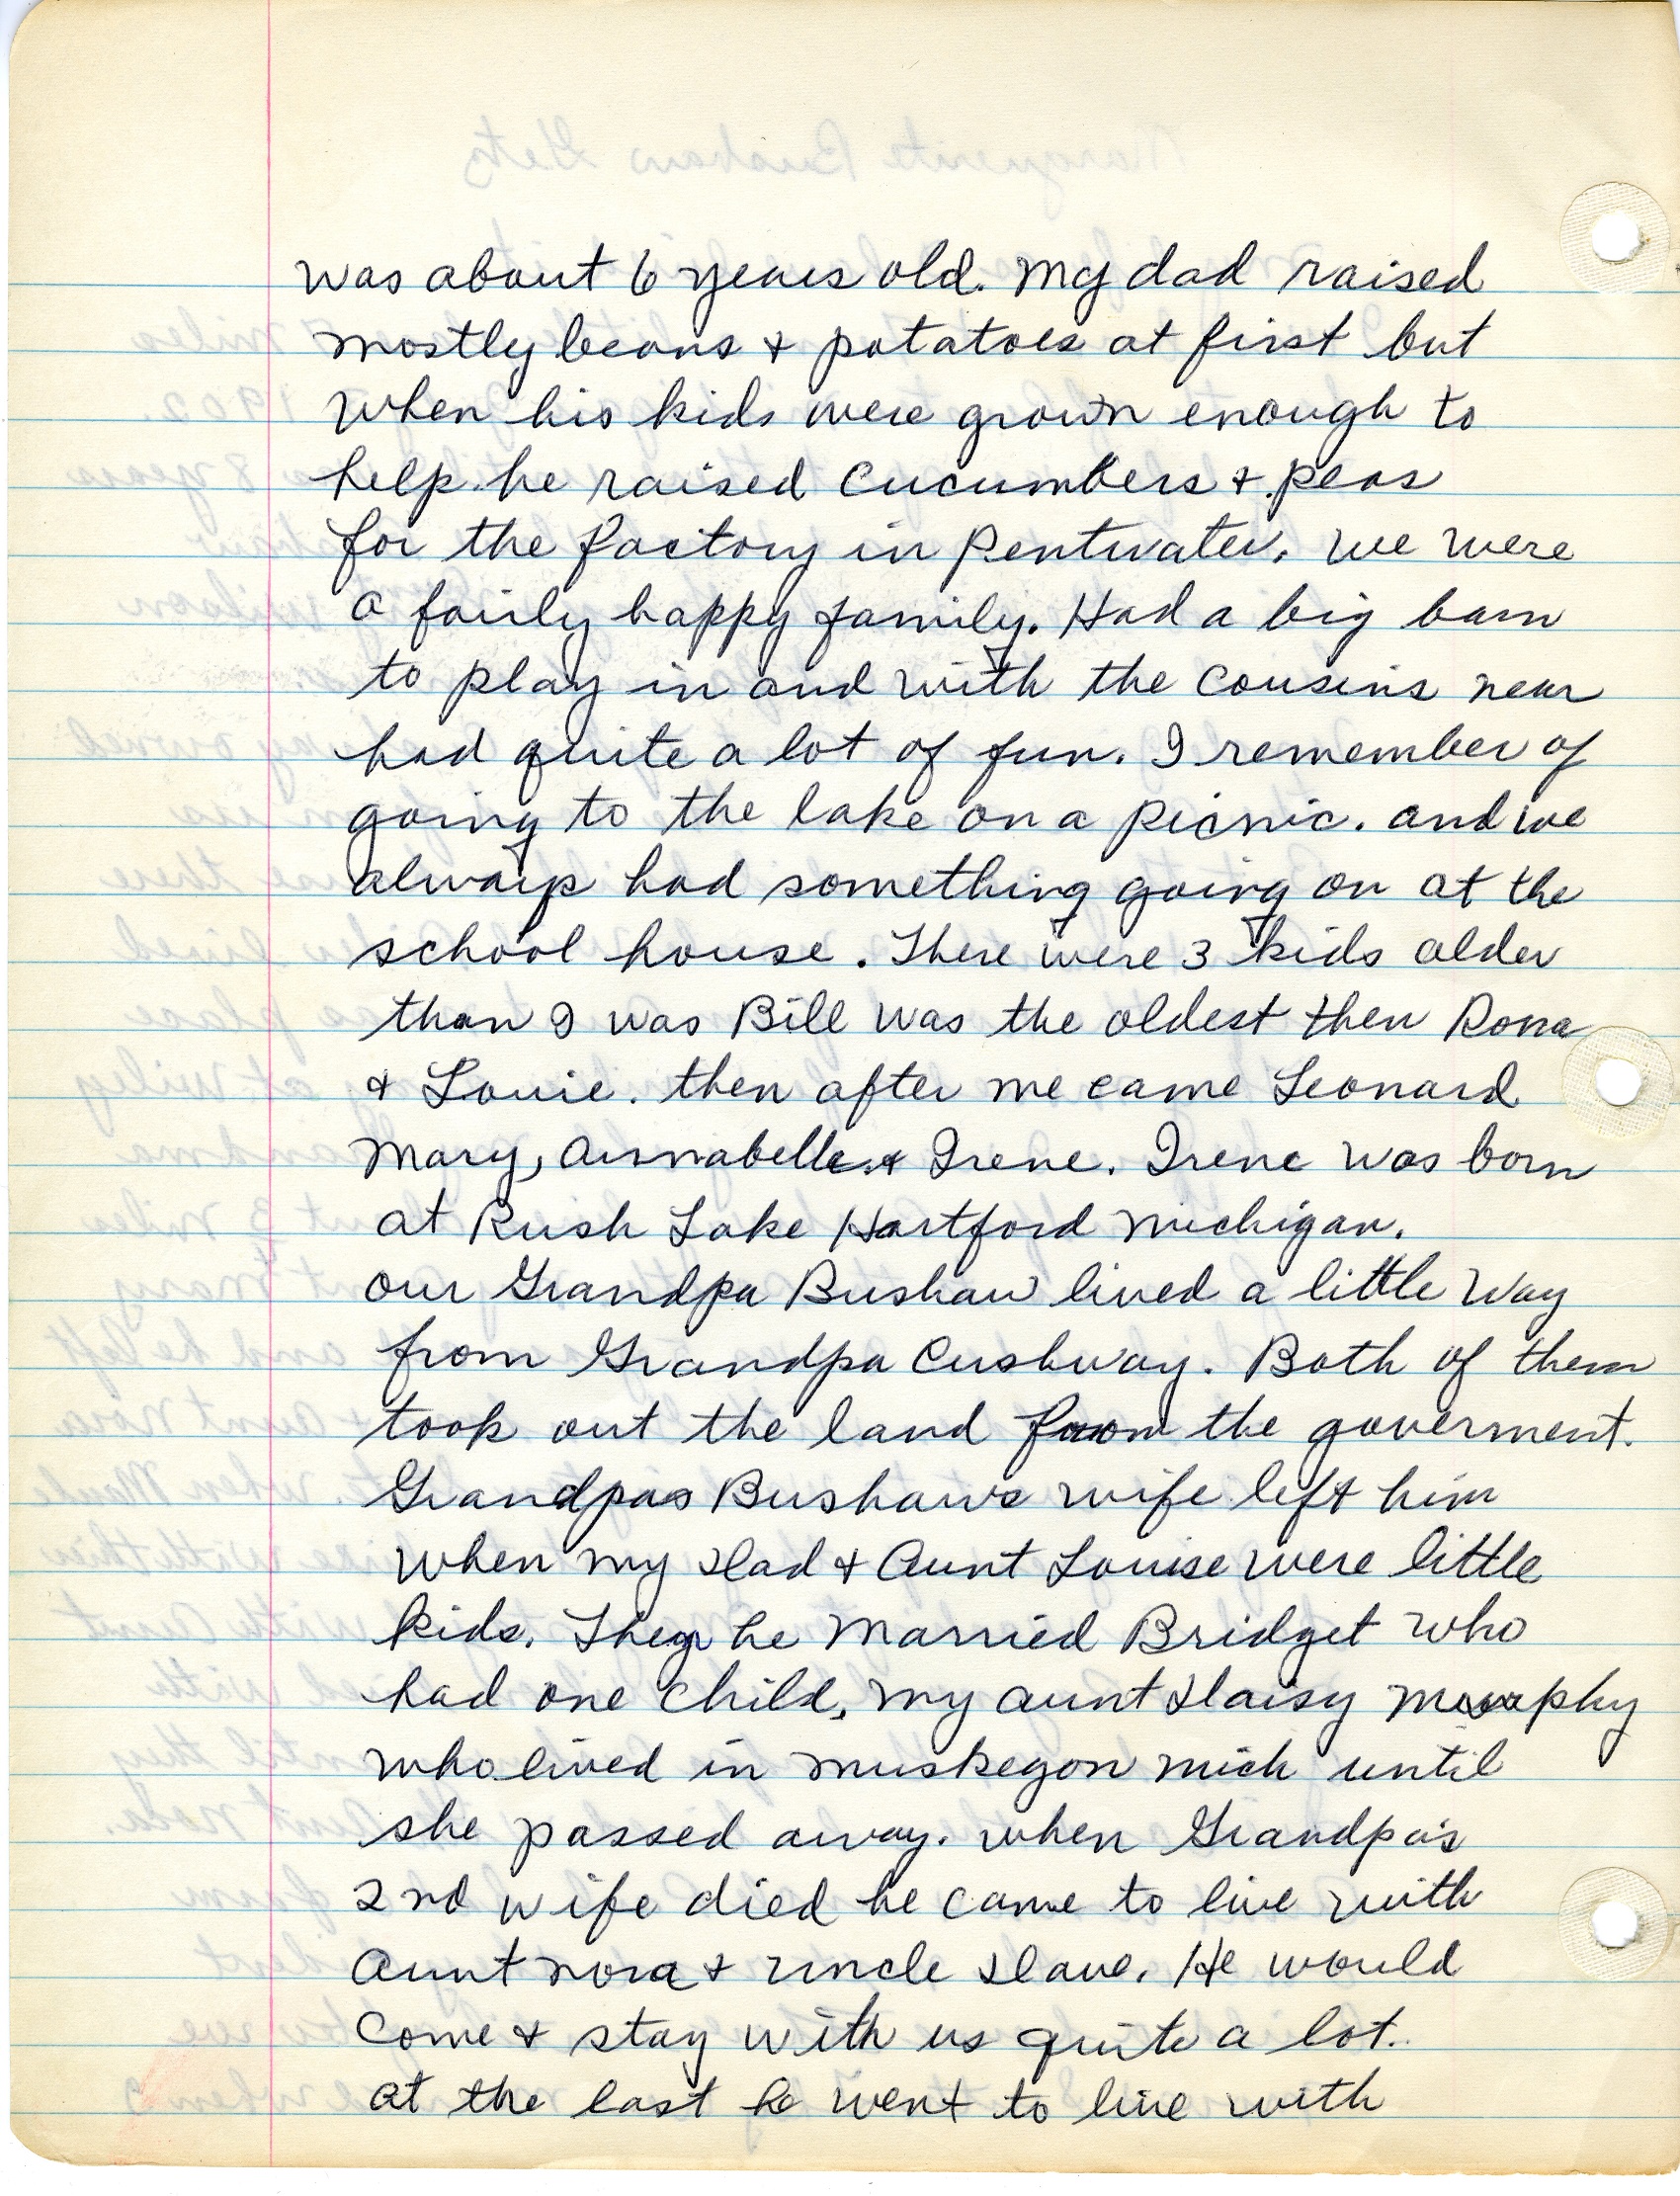 was about 6 years old. My dad raised
mostly beans & potatoes at first but
when his kids were grown enough to
help he raised cucumbers & peas
for the factory in Pentwater. we were
a fairly happy family. Had a big barn
to play in and with the cousins near
had quite a lot of fun. I remember of
going to the lake on a picnic. and we
always had something going on at the
school house. There were 3 kids older
than I was Bill was the oldest then Rona
& Louie. then after me came Leonard
Mary, Annabelle & Irene. Irene was born
at Rush Lake Hartford Michigan.
our Grandpa Bushaw lived a little way
from Grandpa Cushway. Both of them
took out the land from the goverment.
Grandpas Bushaws wife left him
when my Dad & Aunt Louise were little
kids. Then he married Bridget who
had one child, my aunt Daisy Murphy
who lived in Muskegon Mich until
she passed away. when Grandpa's
2nd wife died he came to live with
Aunt Nora & Uncle Dave. He would
come & stay with us quite a lot.
at the last he went to live with